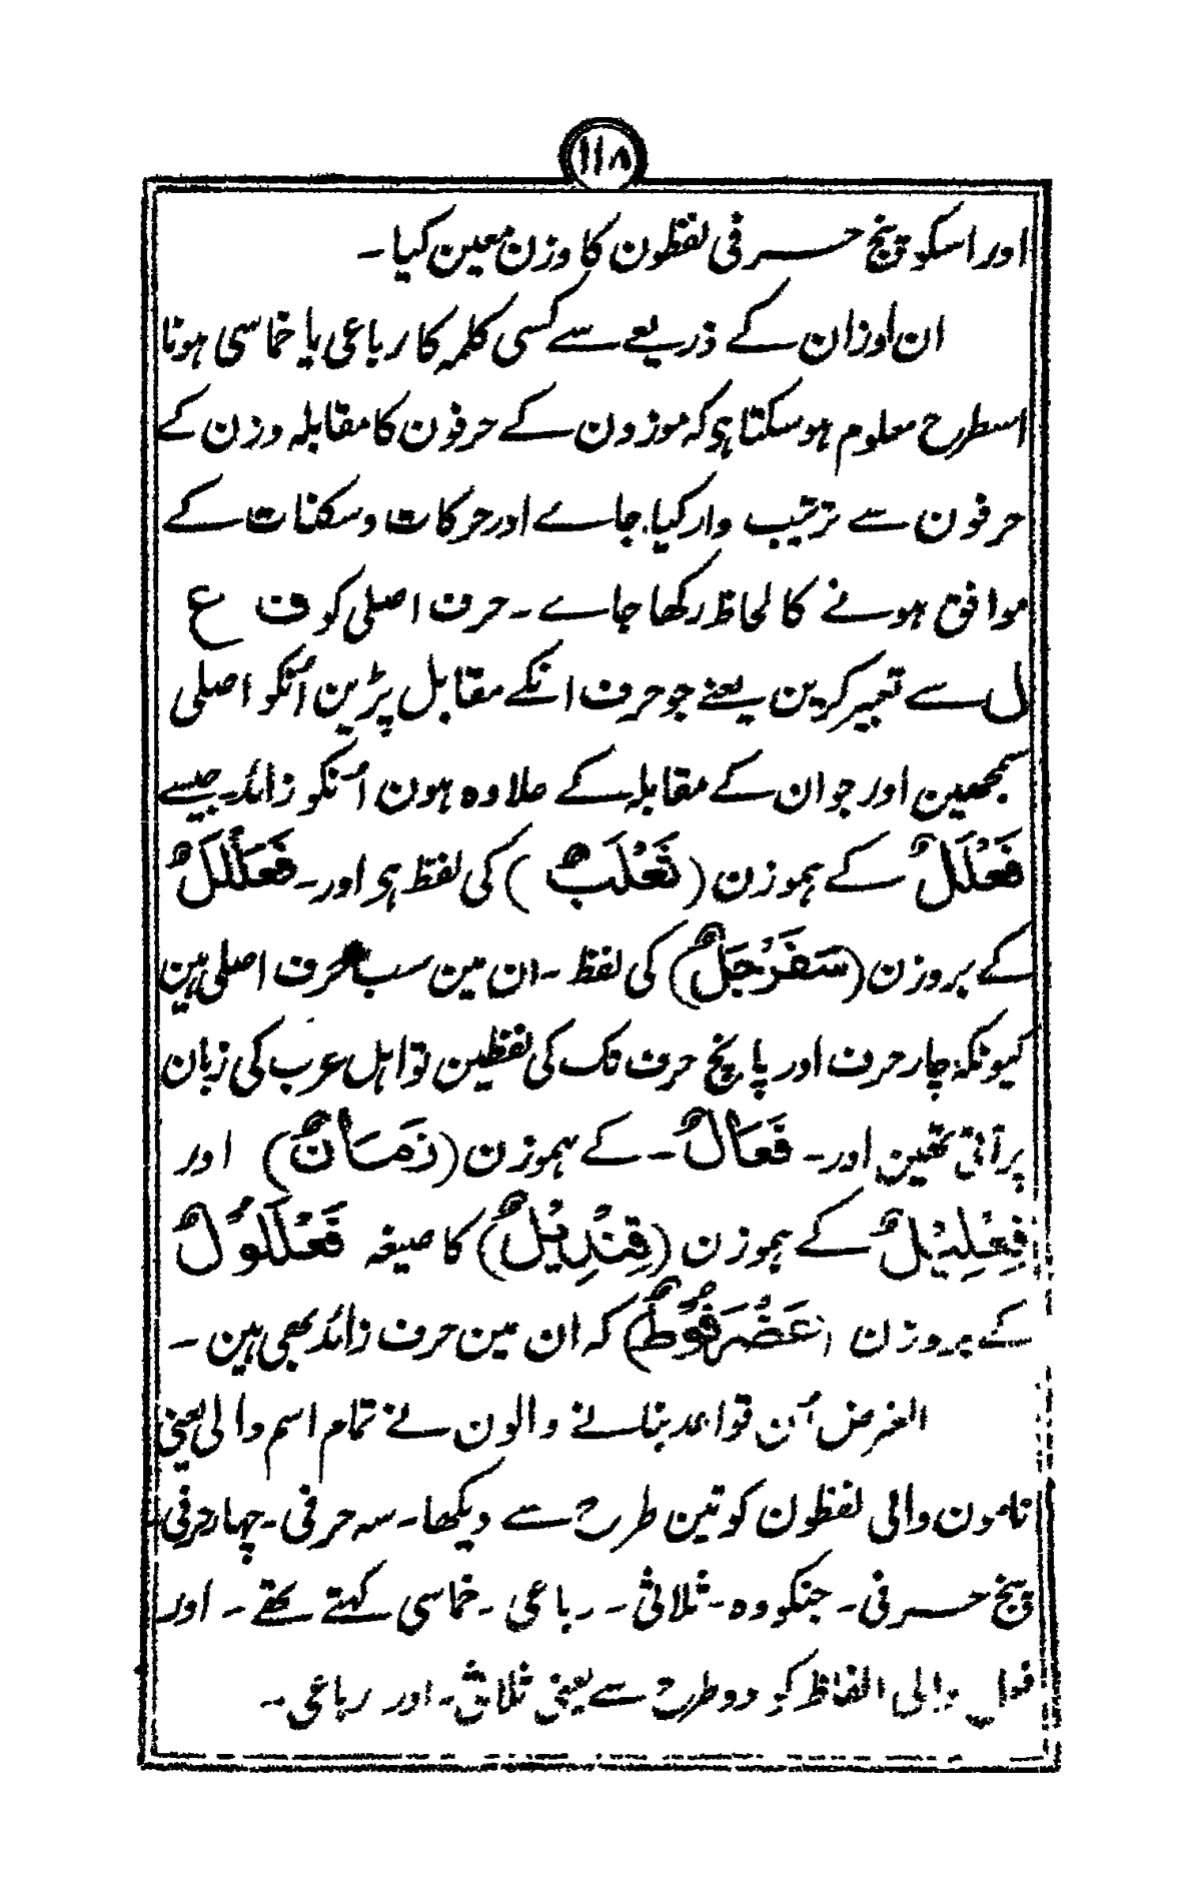 ۱۱۸
اور اسکو پنج حرفی لفظون کا وزن معین کیا۔
ان اوزان کے ذریعے سے کسی کلمہ کا رباعی یا خماسی ہونا
اسطرح معلوم ہوسکتا ہی کہ موزون کے حرفون کا مقابلہ وزن کے
حرفون سے ترتیب وار کیا جاے اور حرکات وسکنات کے
موافق ہونے کا لحاظ رکھا جاے ۔ حرف اصلی کو ف ع
ل سے تعبیر کرین یعنے جو حرف انکے مقابل پڑین اُنکو اصلی
سمجھین اور جو ان کے مقابلہ کے علاوہ ہون اُنکو زائد۔ جیسے
فَعْلَلٌ کے ہموزن (ثَعْلَبٌ) کی لفظ ہی اور۔ فَعَلَّلٌ
کے بروزن (سَفَرْجَلٌ) کی لفظ ۔ ان مین سب حرف اصلی ہین
کیونکہ چار حرف اور پانچ حرف تک کی لفظین تو اہل عرب کی زبان
پر آتی تھین اور۔ فَعَالٌ۔ کے ہموزن (زَمَانٌ) اور
فِعْلِیْلٌ کے ہموزن (قِنْدِیْلٌ) کا صیغہ فَعْلَلُوْلٌ
کے بروزن (عَضْرَفُوْطٌ) کہ ان مین حرف زائد بھی ہین ۔
الغرض اُن قواعد بنانے والون نے تمام اسم والی یعنی
نامون والی لفظون کو تین طرح سے دیکھا۔ سہ حرفی۔ چہار حرفی۔
پنج حرفی ۔ جنکو وہ ۔ ثلاثی ۔ رباعی ۔ خماسی کہتے تھے ۔ اور
فعل والی الفاظ کو دو طرح سے یعنی ثلاثی ۔ اور رباعی ۔